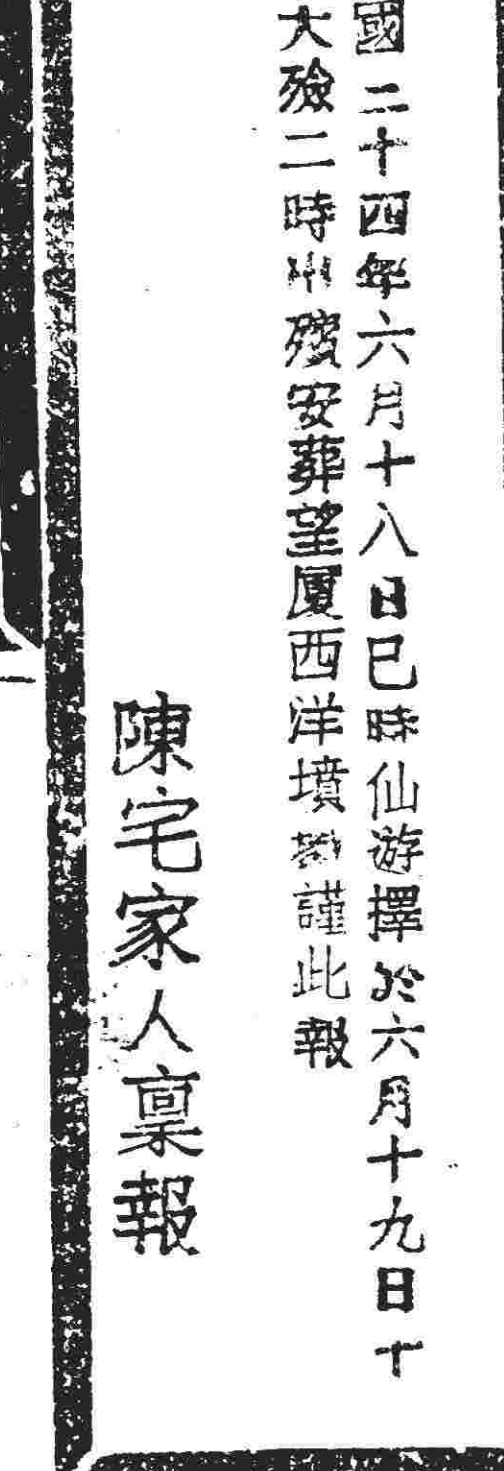 國二十四年六月十八日巳時仙遊擇於六月十九日十
大殮二時出殯安葬望厦西洋墳謹此報
陳宅家人稟報